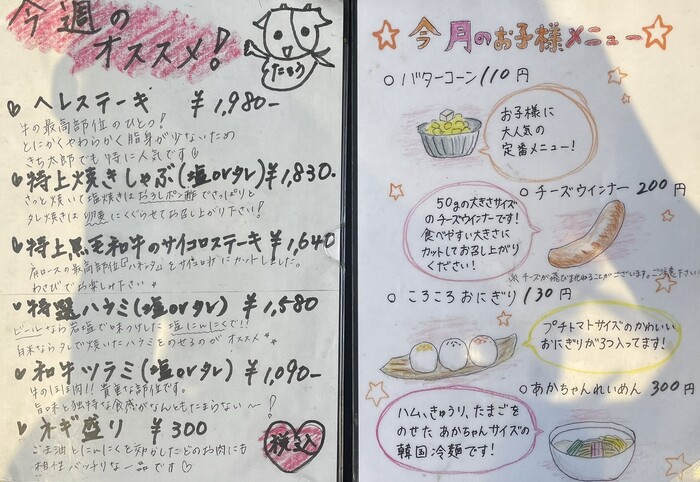 今週の
オススメ!
たろう
♡ ヘレステーキ ¥1,980-
牛の最高部位のひとつ!
とにかくやわらかく脂身が少ないため
きち太郎でも特に人気です♡
♡ 特上焼きしゃぶ(塩orタレ)¥1,830-
さっと焼いて塩焼きはおろしポン酢でさっぱりと
タレ焼きは卵黄にくぐらせてお召し上がり下さい!
特上黒毛和牛のサイコロステーキ ¥1,640
肩ロースの最高部位「ハネシタ」をサイコロ状にカットしました。
わさびでお楽しみ下さい
♡ 特選ハラミ(塩orタレ) ¥1,580
ビールなら岩塩で味つけした塩にんにくで!!
白米ならタレで焼いたハラミをのせるのがオススメ
♡ 和牛ツラミ(塩orタレ) ¥1,090-
牛のほほ肉!! 貴重な部位です。
旨味と独特な食感がなんともたまらない〜!
♡ ネギ盛り ¥300
ごま油とにんにくを効かしたどのお肉にも
相性バッチリな一品です♡
税込
☆今月のお子様メニュー☆
○ バターコーン 110円
お子様に
大人気の
定番メニュー!
○ チーズウインナー 200円
50gの大きさサイズ
のチーズウインナーです!
食べやすい大きさに
カットしてお召し上がり
ください!
※チーズが飛び出ることがございます。ご注意下さい!
○ ころころおにぎり 130円
プチトマトサイズのかわいい
おにぎりが3つ入ってます!
○ あかちゃんれいめん 300円
ハム、きゅうり、たまごを
のせた あかちゃんサイズの
韓国冷麺です!